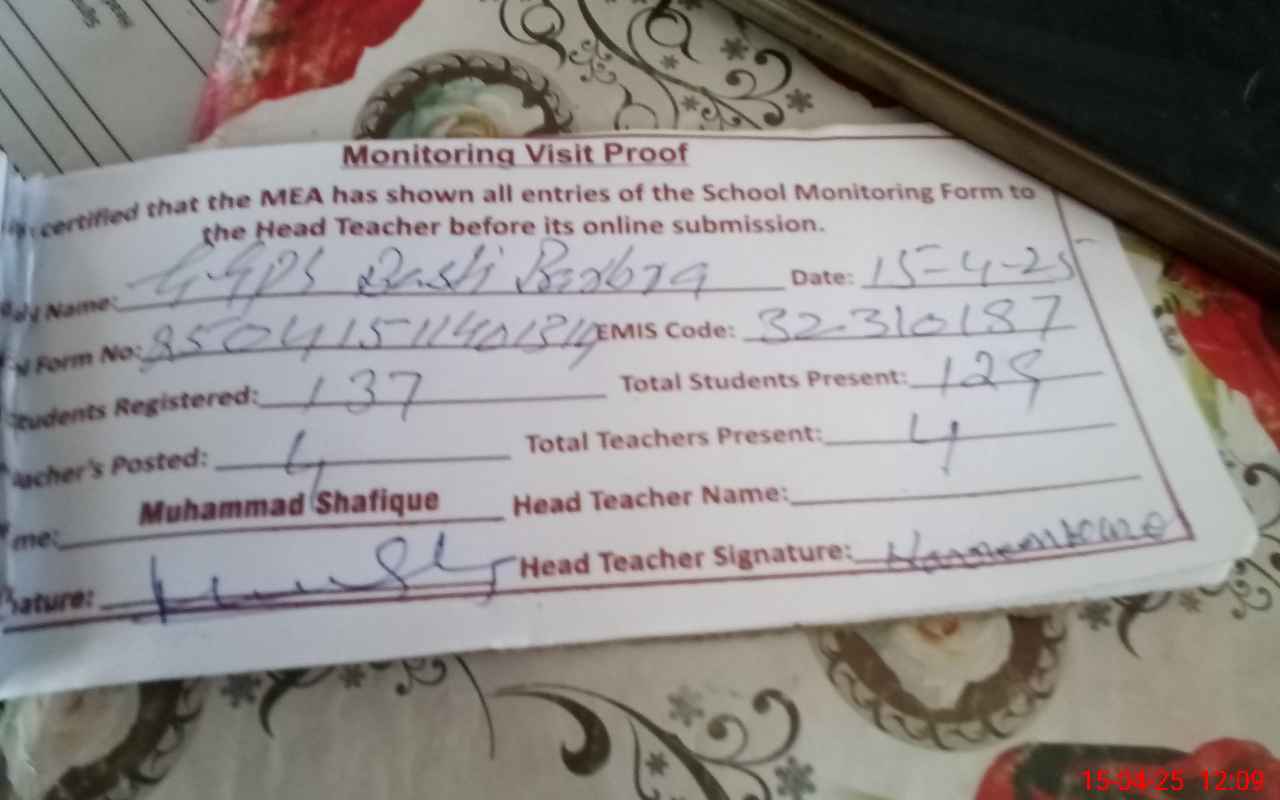 Monitoring Visit Proof
certified that the MEA has shown all entries of the School Monitoring Form to
the Head Teacher before its online submission.
Name: GGPS Basti Date: 15-4-25
Form No: EMIS Code: 32310187
Students Registered: 137 Total Students Present: 129
Teacher's Posted: 4 Total Teachers Present: 4
me: Muhammad Shafique Head Teacher Name:
nature: Head Teacher Signature:
15-04-25 12:09